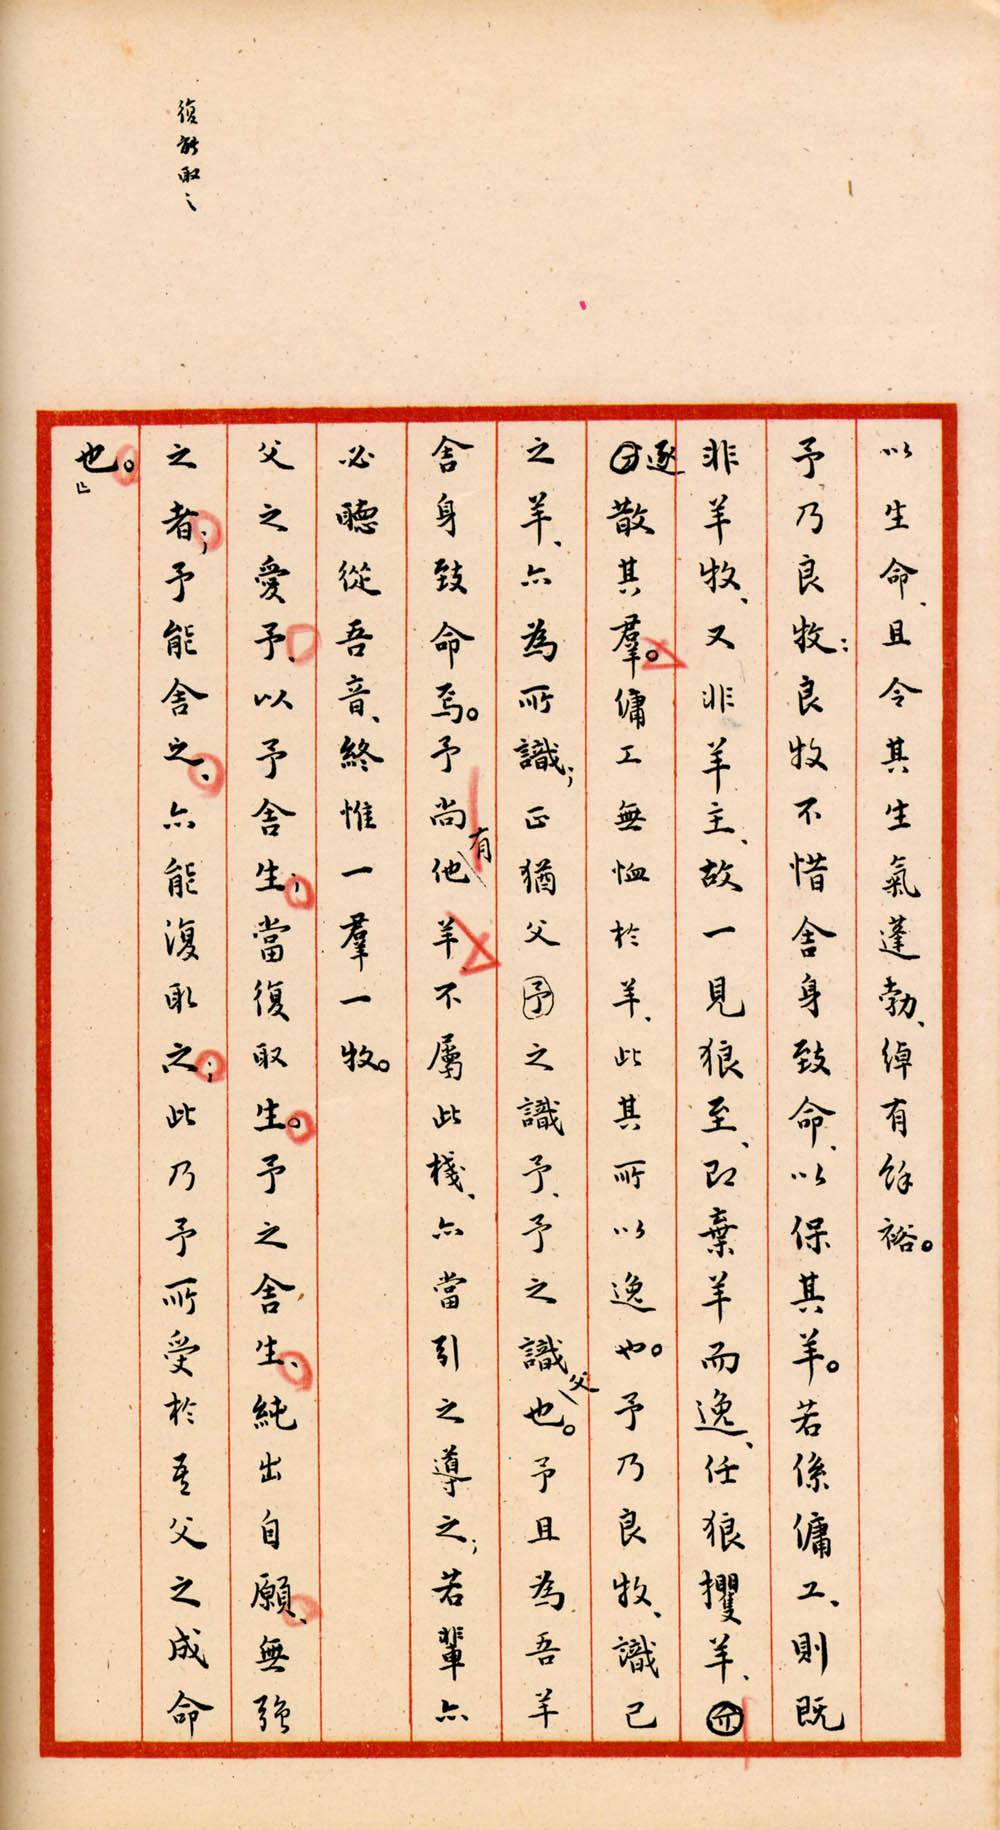 復能取之
以生命、且令其生氣蓬勃、綽有餘裕。
予乃良牧；良牧不惜舍身致命、以保其羊。若係傭工、則既
非羊牧、又非羊主、故一見狼至、即棄羊而逸、任狼攫羊、
逐散其羣。傭工無恤於羊、此其所以逸也。予乃良牧、識己
之羊、亦為所識；正猶父予之識予、予之識父也。予且為吾羊
舍身致命焉。予尚有他羊、不屬此棧、亦當引之導之；若輩亦
必聽從吾音、終惟一羣一牧。
父之愛予、以予舍生；當復取生。予之舍生、純出自願、無強
之者；予能舍之、亦能復取之；此乃予所受於吾父之成命
也。」